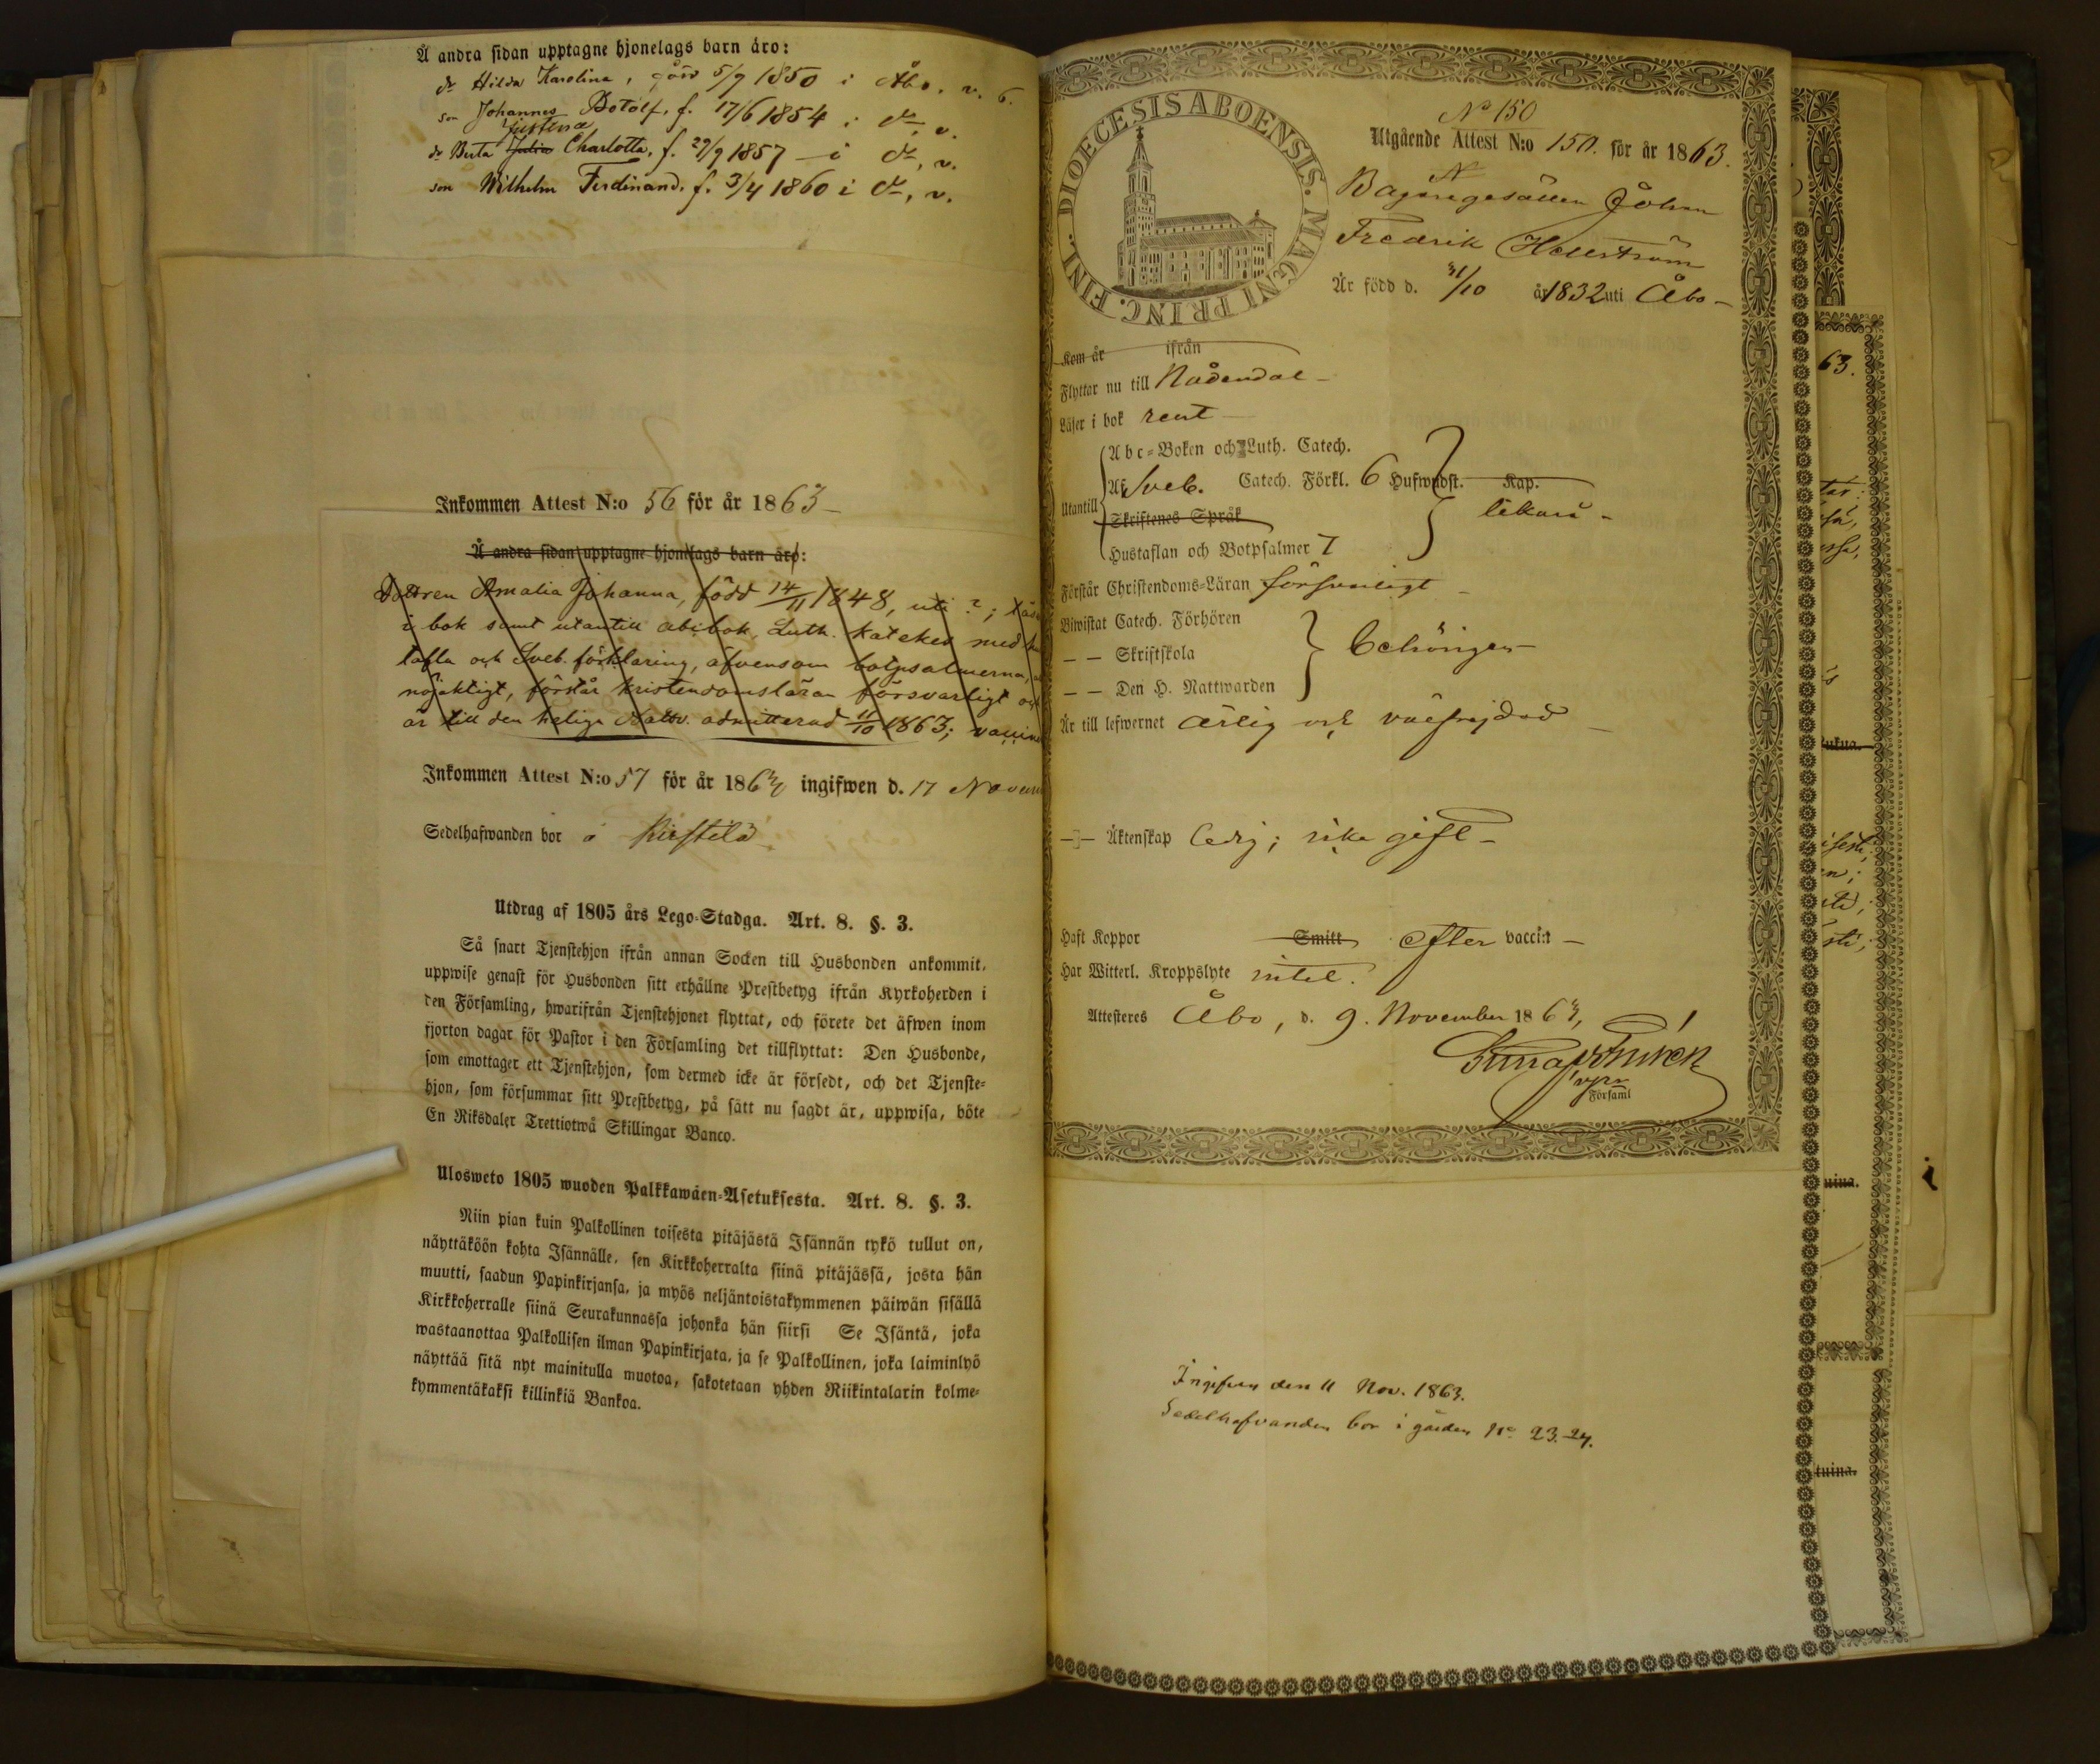 Å andra sidan upptagne hjonelags barn äro:
dr Hilda Karolina, född 5/9 1850 i Åbo. v. 6.
son Johannes Botolf, f. 17/6 1854 i do, v.
Justina
dr Berta Julia Charlotta, f. 29/9 1857 – i do, v.
son Wilhelm Ferdinand, f. 3/4 1860 i do, v.
Inkommen Attest N:o 56 för år 1863 –
Å andra sidan upptagne hjonelags barn äro:
Dottren Amalia Johanna, född 14/11 1848, uti ?;
i bok samt utantill abcbok, Luth. katekes med
tafla och Sveb. förklaring, äfvensom botpsalmerna,
nöjaktigt, förstår kristendomsläran försvarligt och
är till den heliga Nattv. admitterad 11/10 1863;
Inkommen Attest N:o 57 för år 1863 ingifwen d. 17 Novem
Sedelhafwanden bor å
Utdrag af 1805 års Lego-Stadga. Art. 8. §. 3.
Så snart Tjenstehjon ifrån annan Socken till Husbonden ankommit,
uppwise genast för Husbonden sitt erhållne Prestbetyg ifrån Kyrkoherden i
den Församling, hwarifrån Tjenstehjonet flyttat, och förete det äfwen inom
fjorton dagar för Pastor i den Församling det tillflyttat: Den Husbonde,
som emottager ett Tjenstehjon, som dermed icke är försedt, och det Tjenste-
hjon, som försummar sitt Prestbetyg, på sätt nu sagdt är, uppwisa, böte
En Riksdaler Trettiotwå Skillingar Banco.
Ulosweto 1805 wuoden Palkkawäen-Asetuksesta. Art. 8. §. 3.
Niin pian kuin Palkollinen toisesta pitäjästä Isännän tykö tullut on,
näyttäköön kohta Isännälle, sen Kirkkoherralta siinä pitäjässä, josta hän
muutti, saadun Papinkirjansa, ja myös neljäntoistakymmenen päiwän sisällä
Kirkkoherralle siinä Seurakunnassa johonka hän siirsi Se Isäntä, joka
wastaanottaa Palkollisen ilman Papinkirjata, ja se Palkollinen, joka laiminlyö
näyttää sitä nyt mainitulla muotoa, sakotetaan yhden Riikintalarin kolme-
kymmentäkaksi killinkiä Bankoa.
DIOECESIS ABOENSIS. MAGNI PRINC. FINL.
No 150
Utgående Attest N:o 150. för år 1863.
Bagaregesällen Johan
Fredrik Hellström
Är född d. 31/10 år 1832 uti Åbo –
Kom år ifrån
Flyttar nu till Nådendal –
Läser i bok rent –
Utantill
Abc-Boken och Luth. Catech.
Af Sveb. Catech. Förkl. 6 Hufwudst. Kap.
Skriftenes Språk
Hustaflan och Botpsalmer 7
likaså –
Förstår Christendoms-Läran försvarligt –
Biwistat Catech. Förhören
– – Skriftskola
– – Den H. Nattwarden
behörigen –
Är till lefwernet ärlig och välfrejdad –
Äktenskap ledig; icke gift –
Haft Koppor Smitt efter vaccin –
Har Witterl. Kroppslyte intet.
Attesteres Åbo, d. 9. November 1863,
Församl
Ingifven den 11 Nov. 1863.
Sedelhafvanden bor i gården No 23-24.
63.